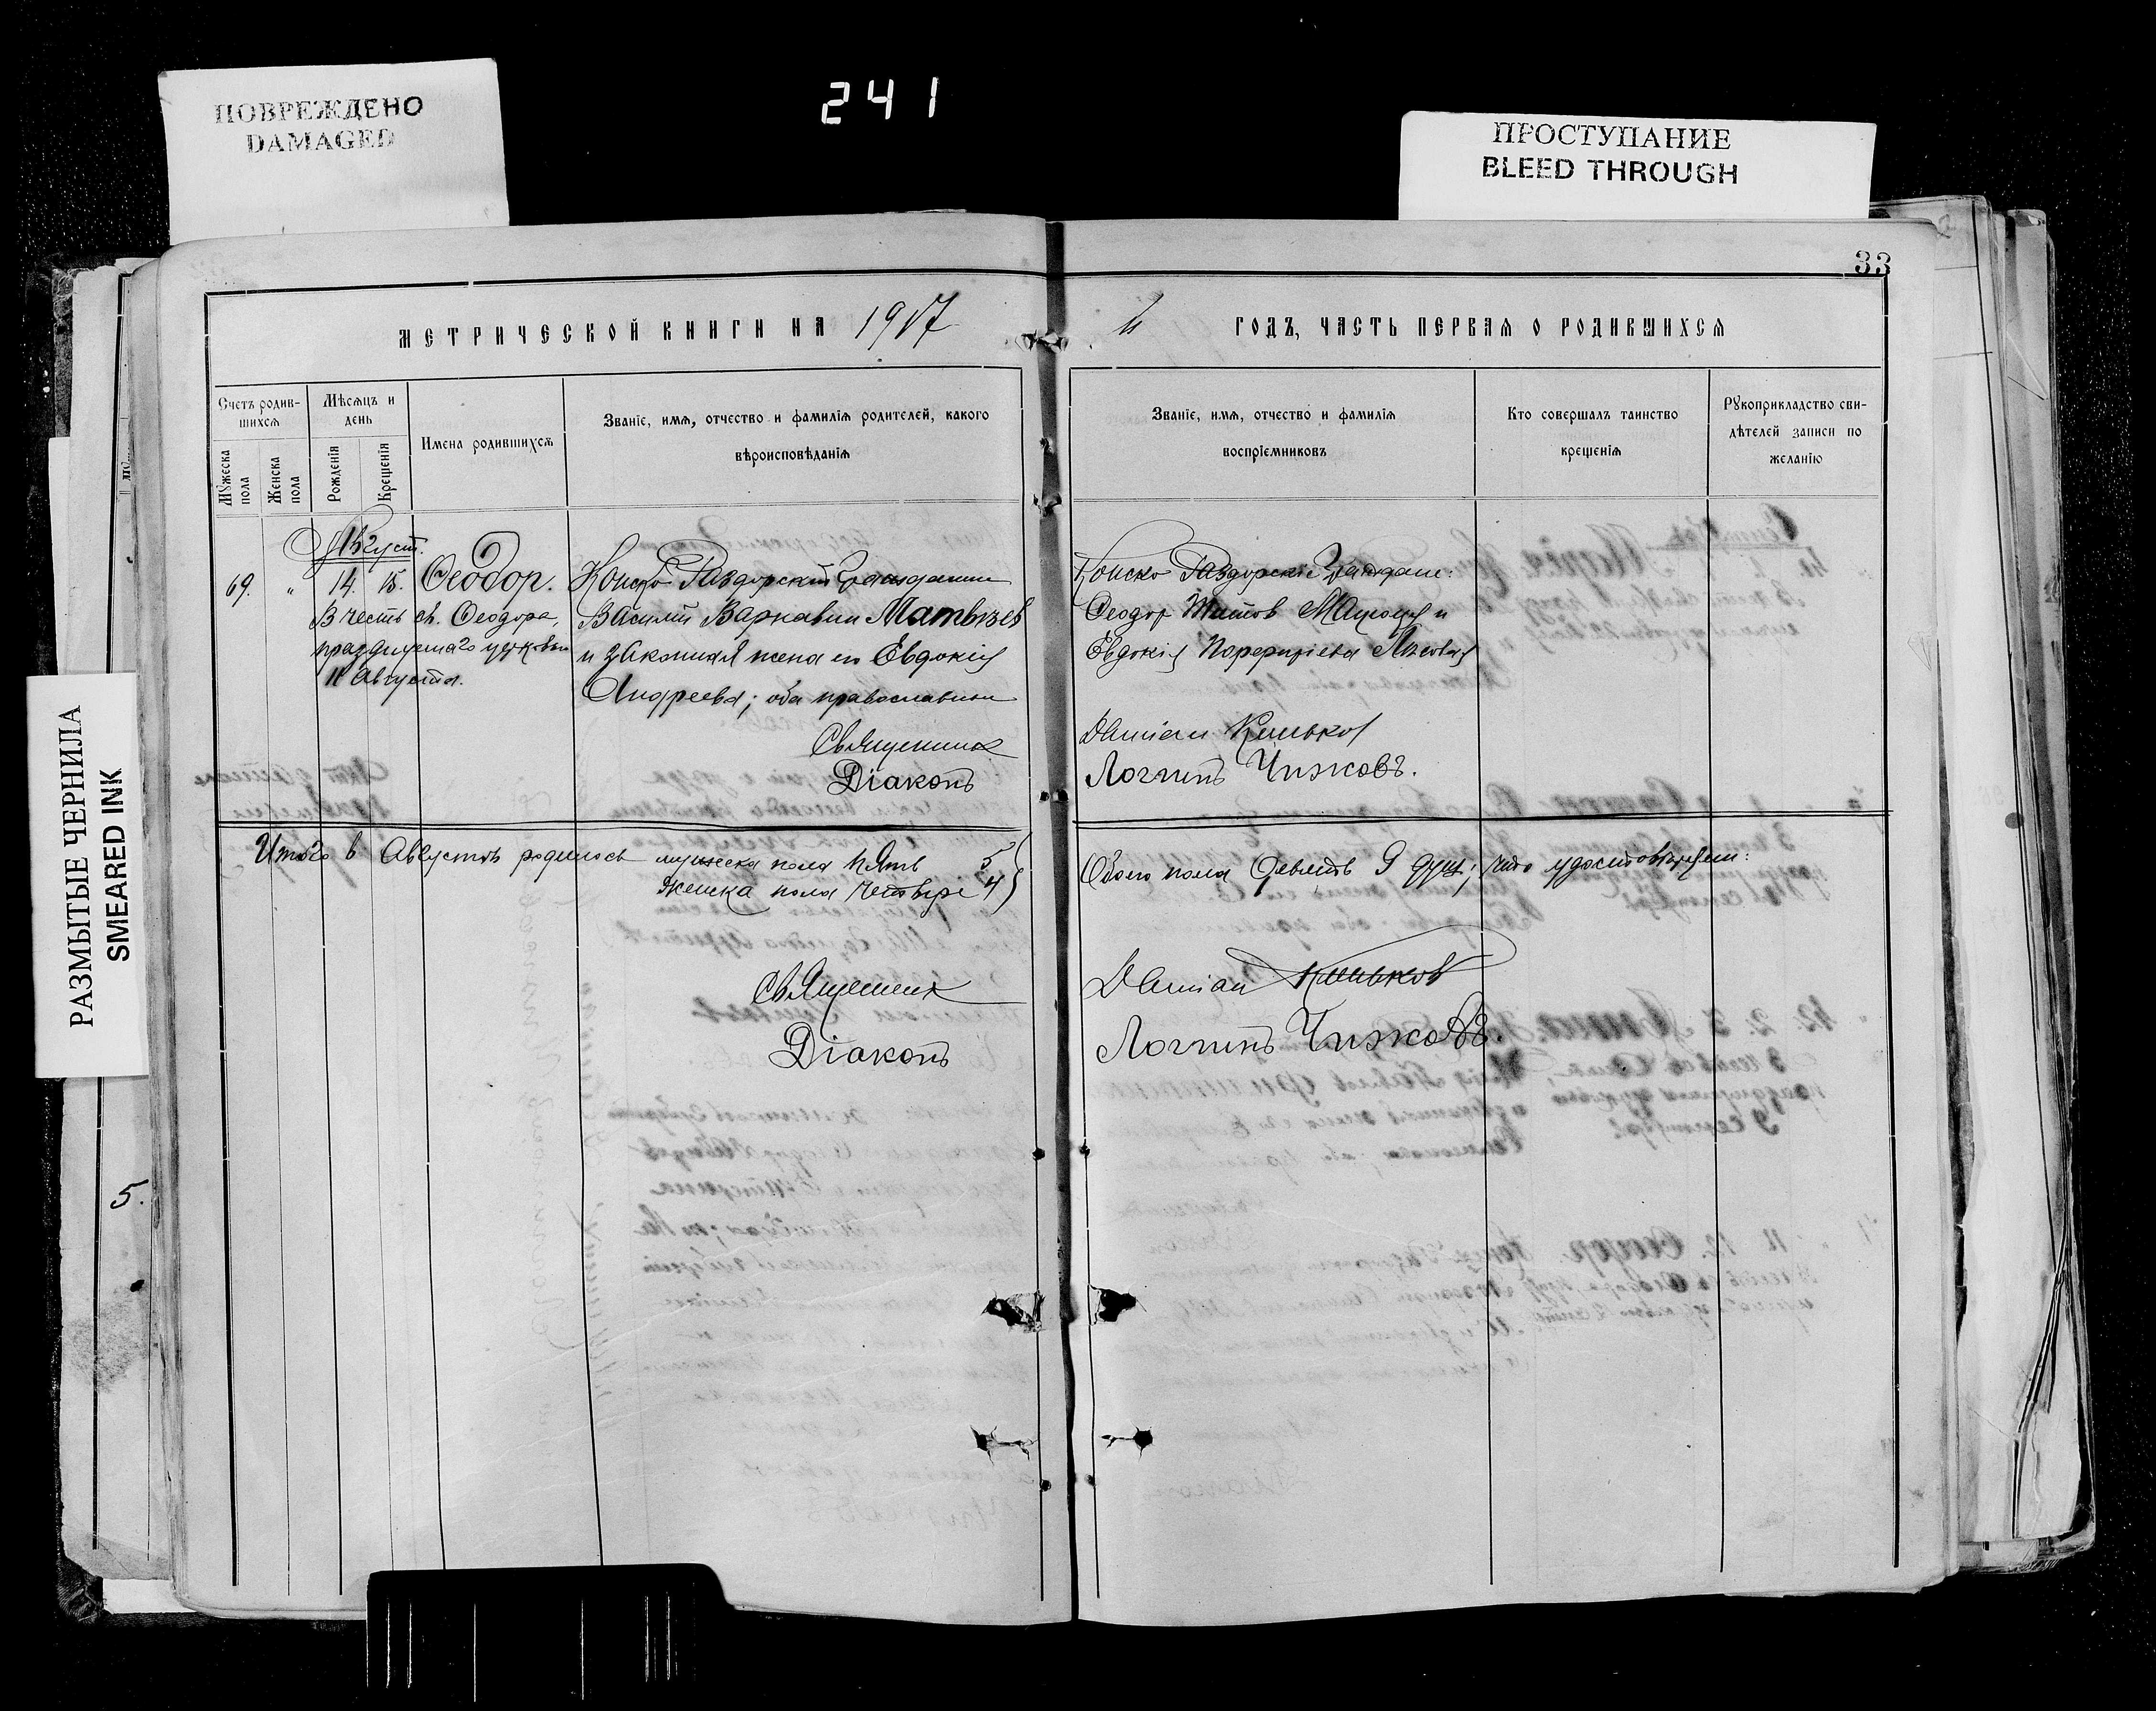 241
ПОВРЕЖДЕНО
DAMAGED
ПРОСТУПАНИЕ
BLEED THROUGH
РАЗМЫТЫЕ ЧЕРНИЛА
SMEARED INK
33
МЕТРИЧЕСКОЙ КНИГИ НА 1917
й ГОДЪ, ЧАСТЬ ПЕРВАЯ О РОДИВШИХСЯ
Счетъ родив-
шихся
Мужеска
пола
Женска
пола
Мѣсяцъ и
день
Рожденія
Крещенія
Имена родившихся
Званіе, имя, отчество и фамилія родителей, какого
вѣроисповѣданія
Званіе, имя, отчество и фамилія
воспріемниковъ
Кто совершалъ таинство
крещенія
Рукоприкладство сви-
дѣтелей записи по
желанію
Август.
69. " 14. 15. Феодор.
В честь св. Феодора,
празднуемаго церковью
11 Августа.
Конско Раздорский Гражданин
Василий Варнавин Матвѣев
и законная жена его Евдокія
Андреева; оба православные
Священник
Діаконъ
Конско Раздорскіе Граждане:
Феодор Титов и
Евдокія Порфиріева
Даміан
Логгинъ Чижовъ.
Итого в Августѣ родилось мужеска пола пять 5
женска пола четыре 4
Обоего пола девять 9 душ; что удостовѣряем:
Священник
Діаконъ
Даміан
Логгинъ Чижовъ.
5.